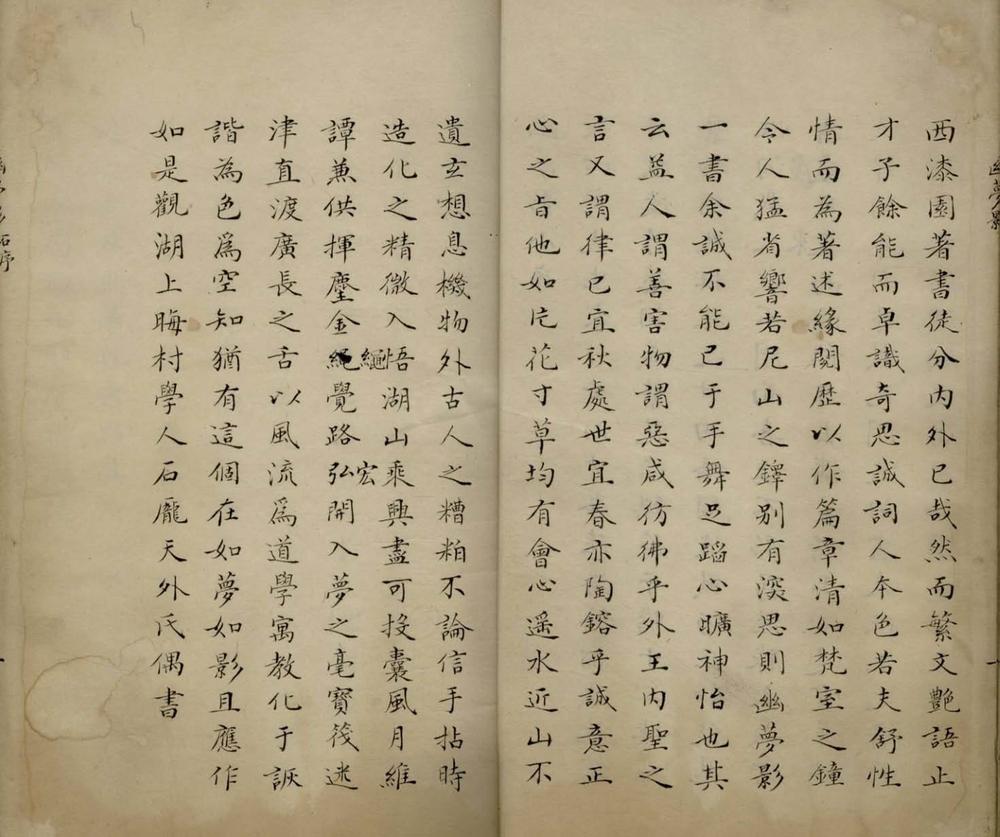 幽夢影
西漆園著書徒分內外已哉然而繁文艷語止
才子餘能而卓識奇思誠詞人本色若夫舒性
情而為著述緣閱歷以作篇章清如梵室之鐘
令人猛省響若尼山之鐸別有深思則幽夢影
一書余誠不能已于手舞足蹈心曠神怡也其
云益人謂善害物謂惡咸彷彿乎外王內聖之
言又謂律己宜秋處世宜春亦陶鎔乎誠意正
心之旨他如片花寸草均有會心遥水近山不
遺玄想息機物外古人之糟粕不論信手拈時
造化之精微入悟湖山乘興盡可投囊風月維
譚兼供揮麈金繩覺路弘開入夢之毫寶筏迷
繩
宏
津直渡廣長之舌以風流爲道學寓教化于詼
諧為色爲空知猶有這個在如夢如影且應作
如是觀湖上晦村學人石龐天外氏偶書
石序